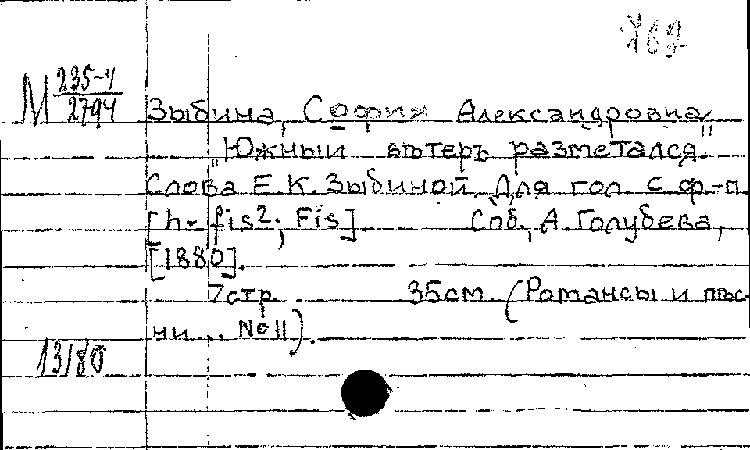 767
М 235-4/2794
Зыбина, София Александровна
"Южный вѣтеръ разметался."
Слова Е.К. Зыбиной. Для гол. с ф-п.
[h - fis²; Fis] Спб., А. Голубева,
[1880].
7 стр. 35 см. (Романсы и пѣс-
ни... № 11).
13/80